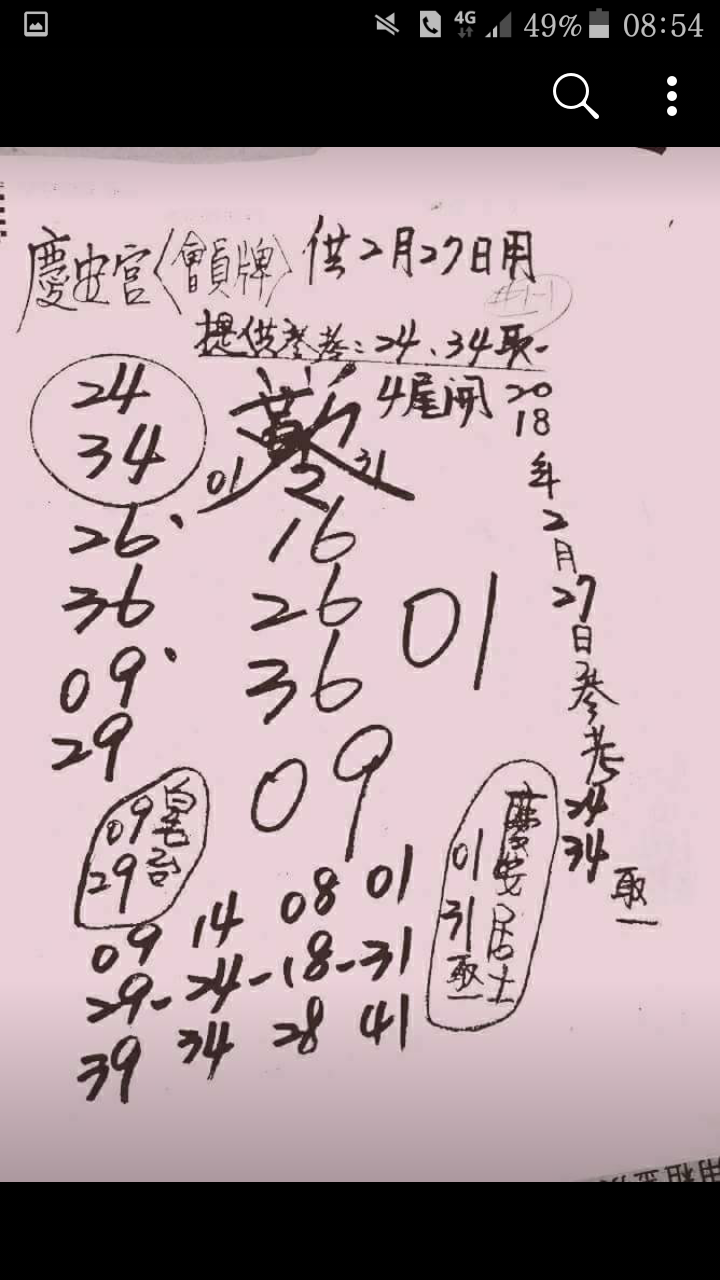 4G 49% 08:54
慶安宮〈會員牌〉供2月27日用
提供參考:24、34取-
4尾開
2018年2月27日參考24 34取一
24
34
26
36
09
29
01 31
2
16
26
36
01
09
09
29
慶安居士
01
31
取一
09 14 08 01
29-24-18-31
39 34 28 41